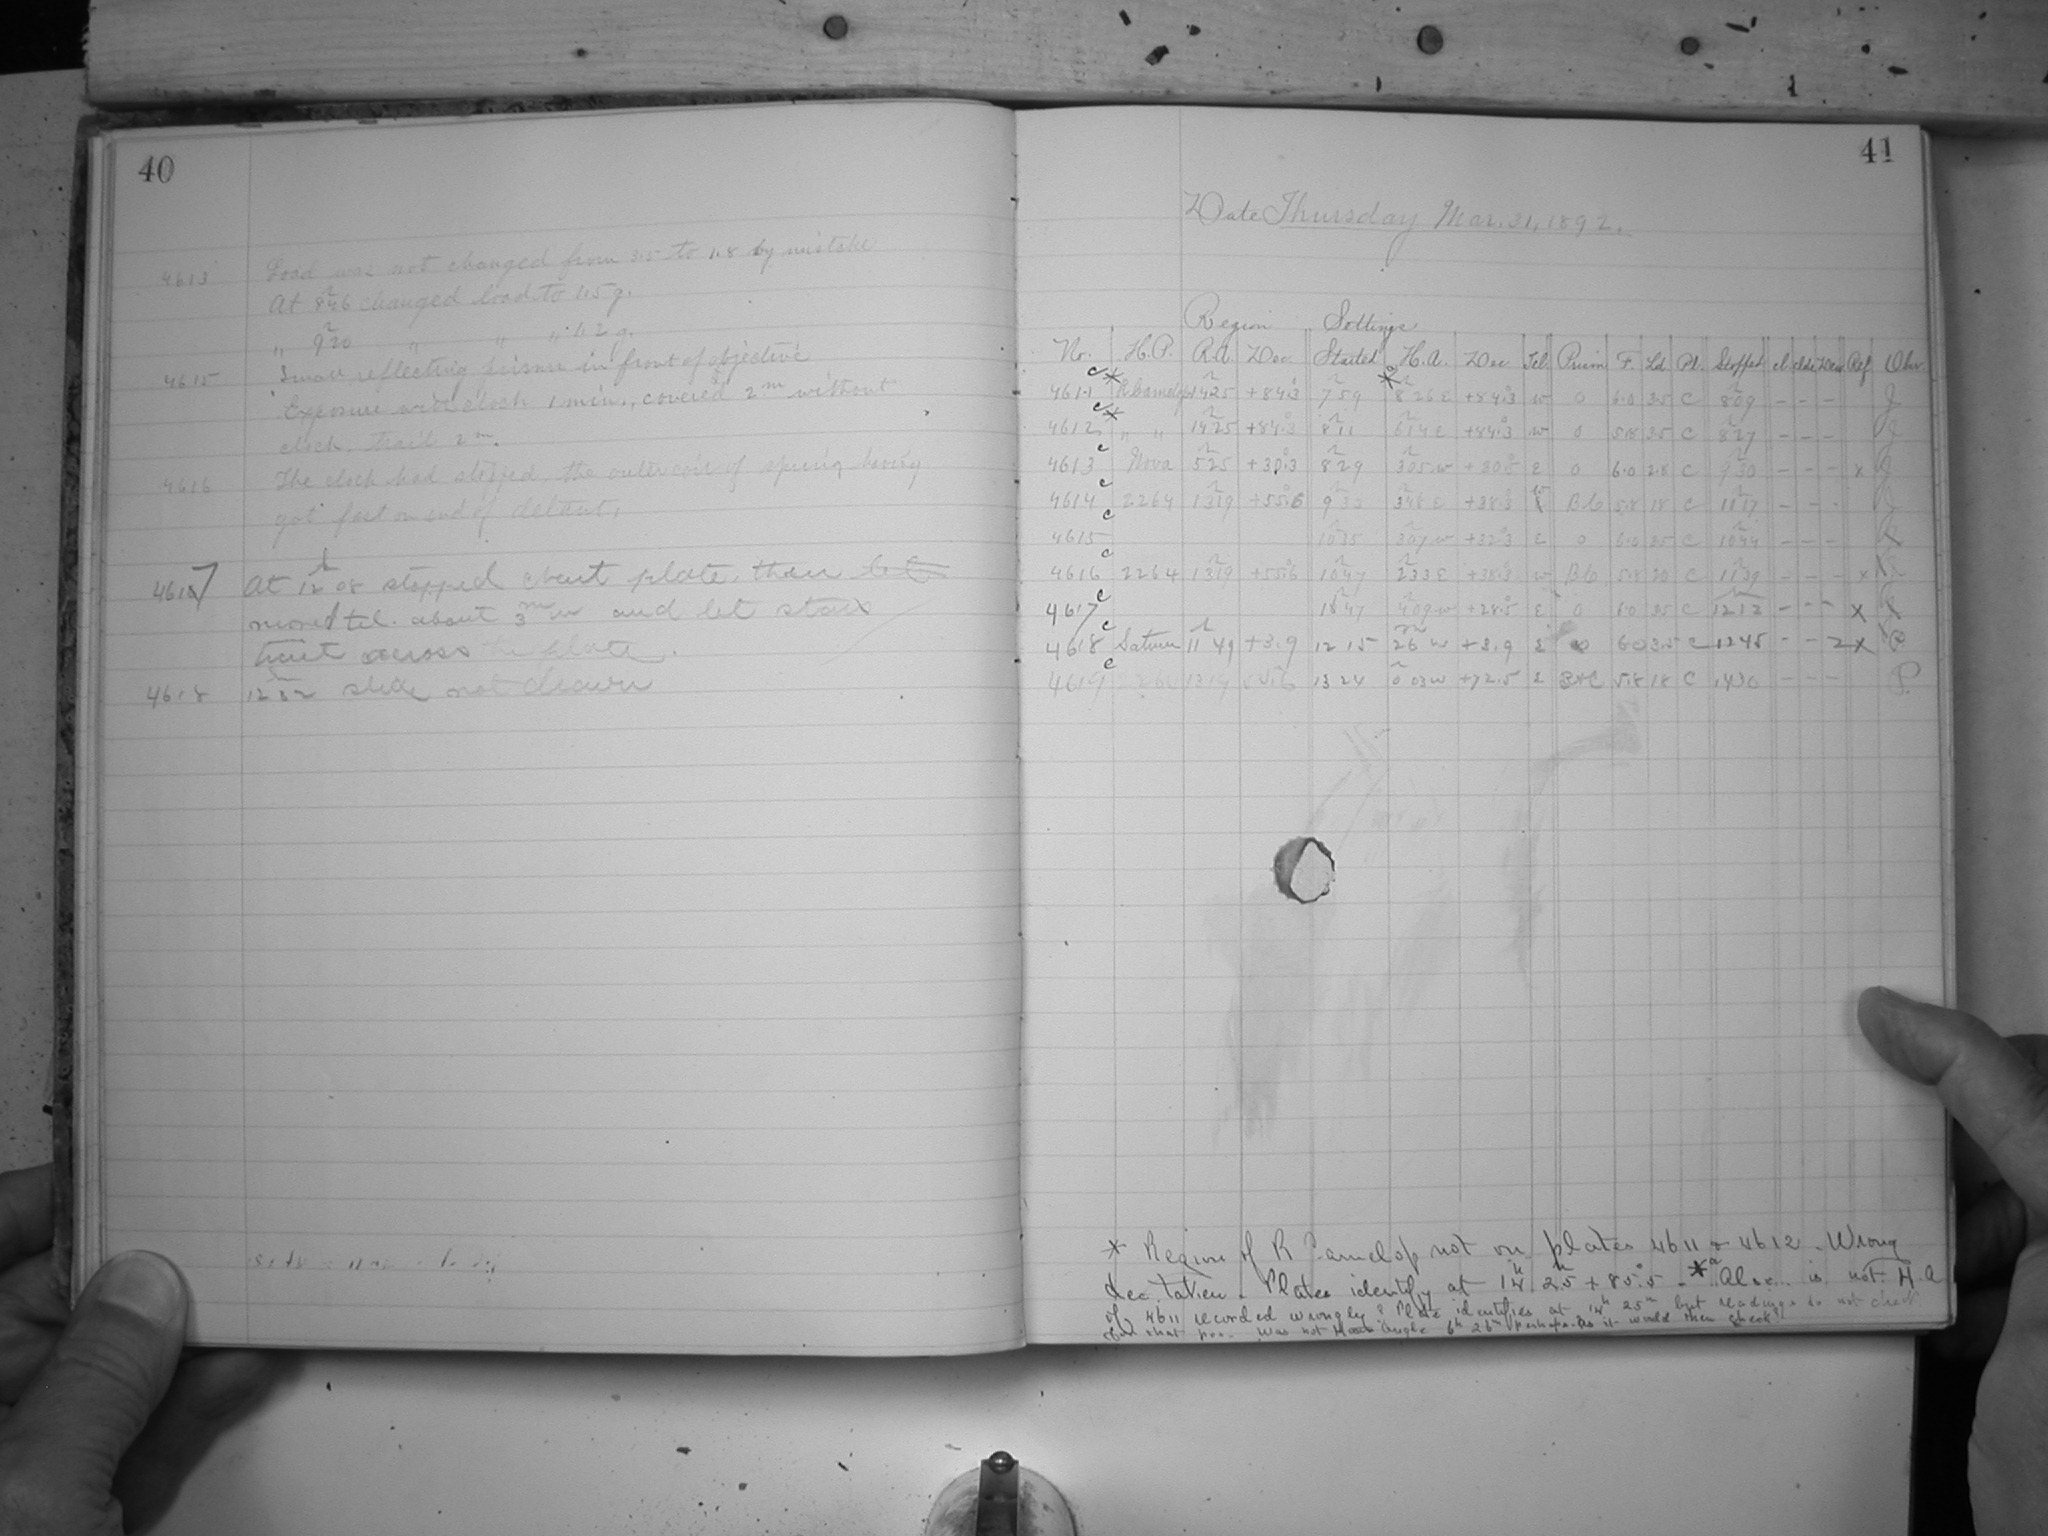 40
4613 Load was not changed from 3.5 to 1.8 by mistake
At 8h46 changed load to 1.5 g.
" 9h20 " " " 1.2 g.
4615 Small reflecting prism in front of objective
Exposure with clock 1 min., covered 2m without
clock, trail 2m.
4616 The clock had stopped, the outer coil of spring having
got fast on end of detent.
4617 At 12h08 stopped plate, then
moved tel. about 3m w and let stars
trail across the plate.
4618 12h32 slide not drawn
41
Date Thursday Mar. 31, 1892.
Region Settings
No. H.P. R.A. Dec. Started H.A. Dec Tel. Prism F. Ld. Pl. Stopped cl. clds Dew Ref Obsr.
4611 c* R Camelop 1425 +84.3 759 * 826 E +84.3 w 0 6.0 3.5 C 809 J
4612 c* " " 1425 +84.3 811 614 E +84.3 w 0 5.8 3.5 C 827 - - - J
4613 c Nova 525 +30.3 829 305 w +30.5 E 0 6.0 2.8 C 930 - - - x J
4614 c 2264 1319 +55.6 933 348 E +38.3 w B+C 5.8 18 C - - - J
4615 c 1035 307 w +32.3 E 0 6.0 3.5 C 1044 - - -
4616 c 2264 1319 +55.6 1047 233 E +38.3 w B+C 5.8 20 C 1139 - - - x
4617 c 409 w +28.5 E 0 6.0 3.5 C 1212 - - - x
4618 c Saturn 11 49 +3.9 12 15 26 w +3.9 E 0 6.0 3.5 C 1245 - - 2 x P
4619 c 1319 1324 0 03 w +72.5 E B+C 5.8 18 C 1430 - - - P.
* Region of R Camelop not on plates 4611 + 4612. Wrong
Plates identify at 14h 25m +85°.5 - *a Also is not H.A
of 4611 recorded wrongly? Plate identifies at 14h 25m but readings do not check
for that pos. Was not Hour angle 6h 26m perhaps as it would then check?